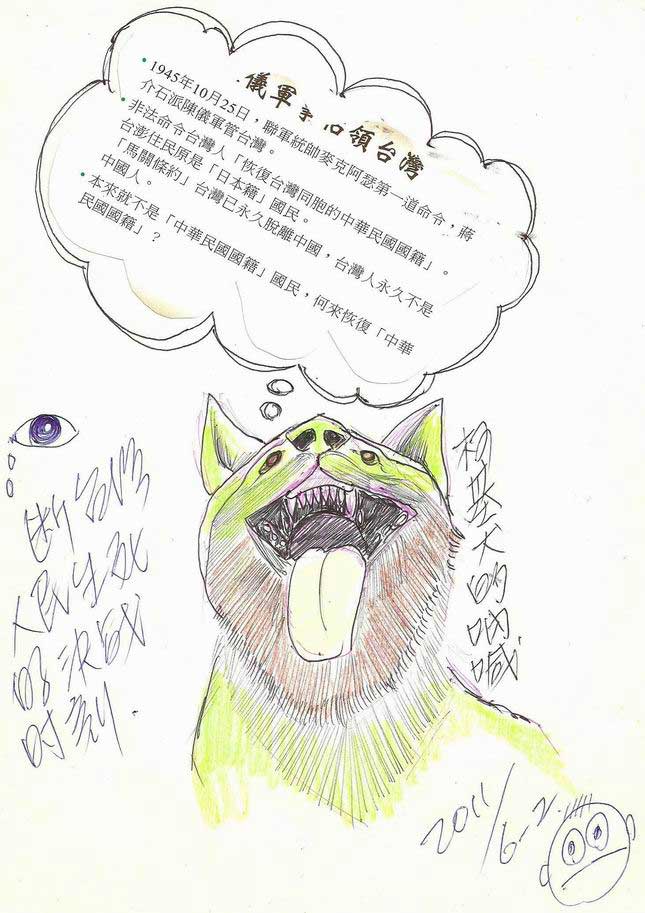 儀軍事佔領台灣
• 1945年10月25日，聯軍統帥麥克阿瑟第一道命令，蔣
介石派陳儀軍管台灣。
• 非法命令台灣人「恢復台灣同胞的中華民國國籍」。
台澎住民原是「日本籍」國民。
「馬關條約」台灣已永久脫離中國，台灣人永久不是
中國人。
• 本來就不是「中華民國國籍」國民，何來恢復「中華
民國國籍」？
断台灣
人民生死
的決战
时刻.
基犬的吶喊
2011/6-2